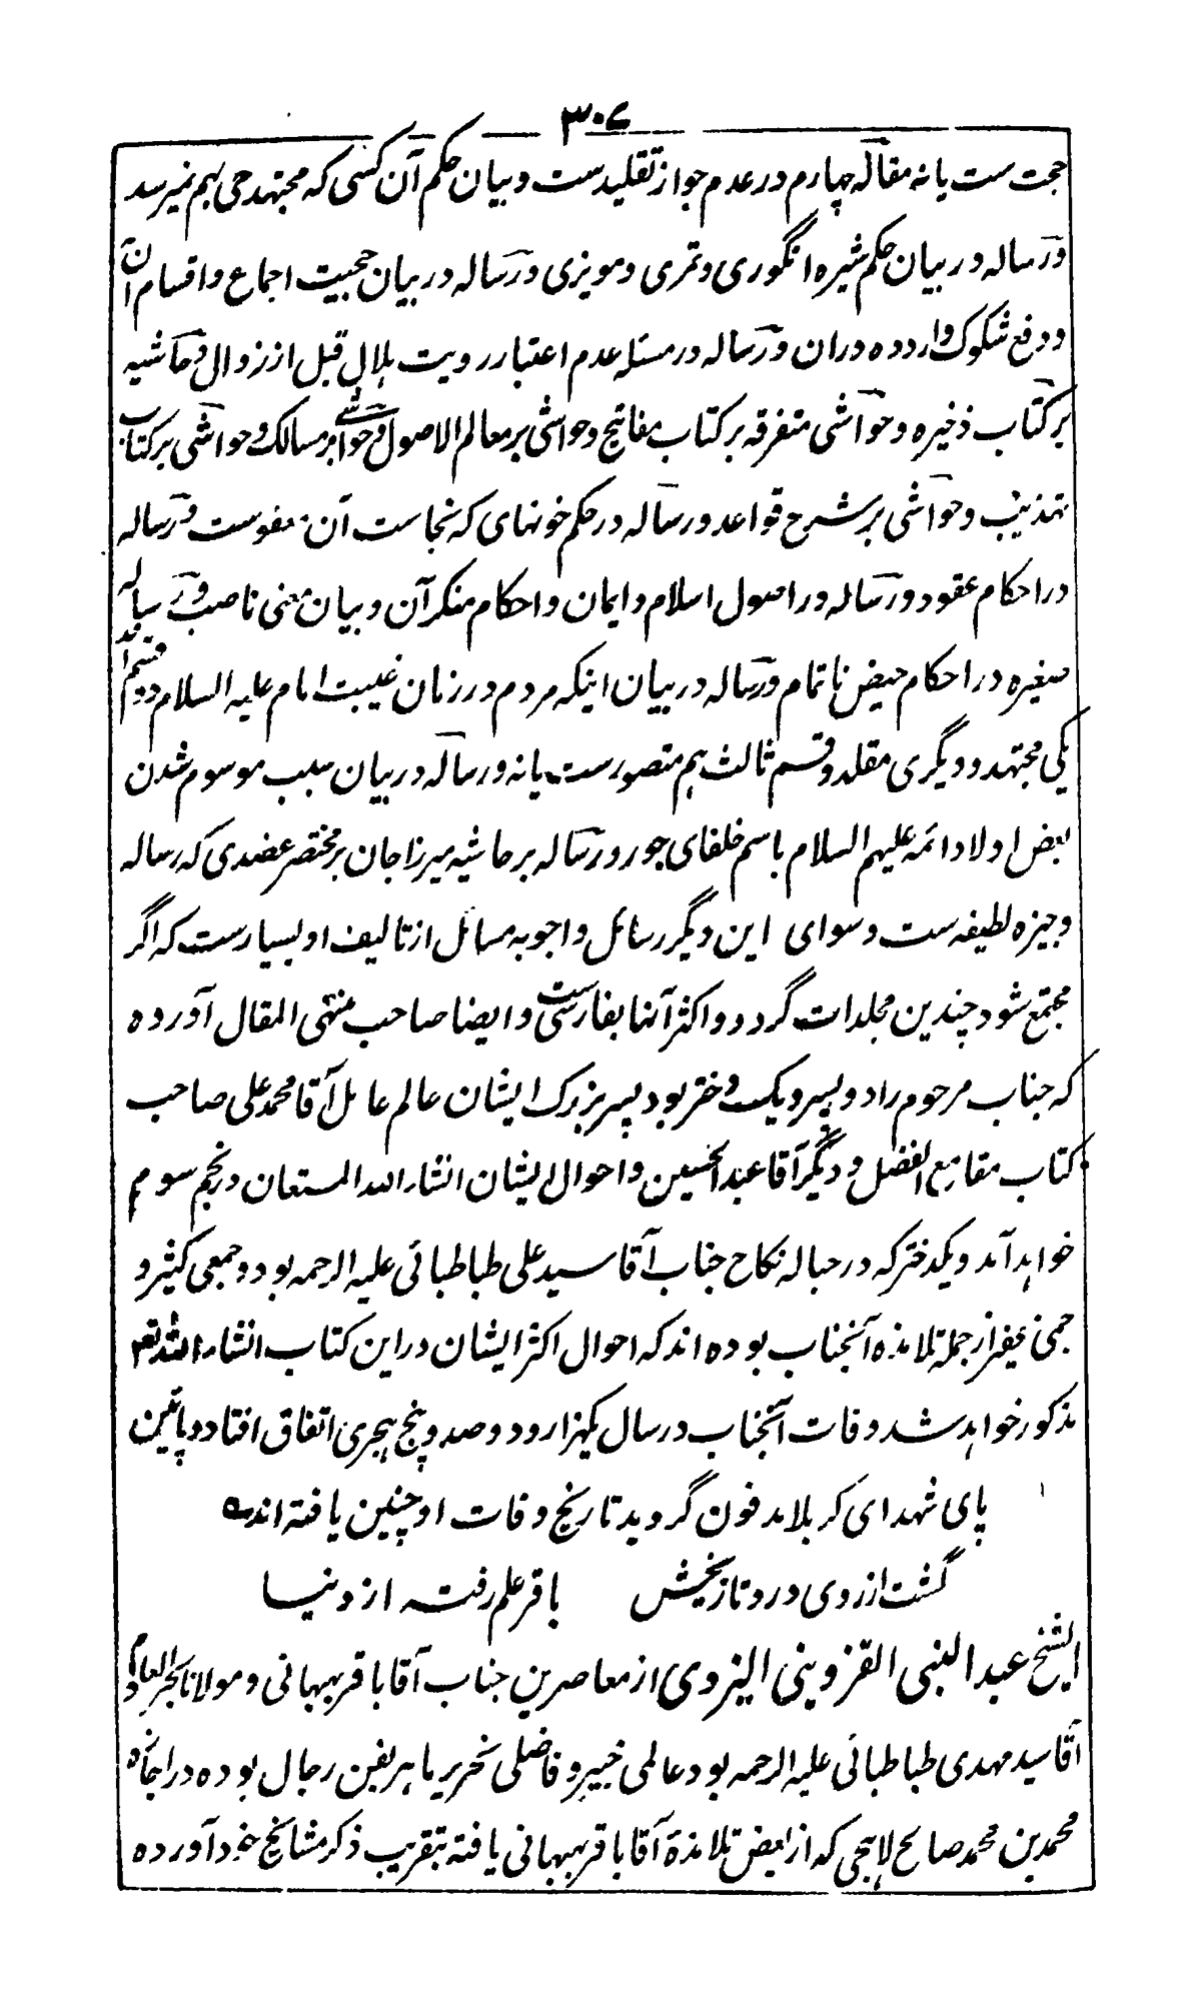 ۳۰۶
حجت ست یا نه مقاله چهارم در عدم جواز تقلیدست و بیان حکم آن کسی که مجتهد حی بهم نمیرسد
ورساله در بیان حکم شیره انگوری و تمری و مویزی ورساله در بیان حجیت اجماع و اقسام آن
و دفع شکوک وارده دران ورساله در مسئله عدم اعتبار رویت هلال قبل از زوال و حاشیه
بر کتاب ذخیره و حواشی متفرقه بر کتاب مفاتیح و حواشی بر معالم الاصول و حواشی بر مسالک و حواشی بر کتاب
تهذیب و حواشی بر شرح قواعد ورساله در حکم خونهای که نجاست آن معفوست ورساله
در احکام عقود ورساله در اصول اسلام و ایمان و احکام منکر آن و بیان معنی ناصب ورساله
صغیره در احکام حیض ناتمام ورساله در بیان اینکه مردم در زمان غیبت امام علیه السلام دو قسم اند
یکی مجتهد و دیگری مقلد و قسم ثالث هم متصورست یا نه ورساله در بیان سبب موسوم شدن
بعض اولاد ائمه علیهم السلام باسم خلفای جور ورساله بر حاشیه میرزا جان بر مختصر عضدی که رساله
وجیزه لطیفه ست و سوای این دیگر رسائل و اجوبه مسائل از تالیف او بسیارست که اگر
مجتمع شود چندین مجلدات گردد و اکثر آنها بفارسی ست و ایضا صاحب منتهی المقال آورده
که جناب مرحوم را دو پسر و یک دختر بود پسر بزرک ایشان عالم عامل آقا محمد علی صاحب
کتاب مقامع الفضل و دیگر آقا عبد الحسین و احوال ایشان انشاء الله المستعان در نجم سوم
خواهد آمد و یکدختر که در حباله نکاح جناب آقا سید علی طباطبائی علیه الرحمه بود و جمعی کثیر و
جمی غفیر از جمله تلامذه آنجناب بوده اند که احوال اکثر ایشان در این کتاب انشاء الله تعم
مذکور خواهد شد وفات آنجناب در سال یکهزار و دو صد و پنج هجری اتفاق افتاد و پائین
پای شهدای کربلا مدفون گردید تاریخ وفات او چنین یافته اند
گشت از روی درد تاریخش باقر علم رفته از دنیا
الشیخ عبد النبی القزوینی الیزدی از معاصرین جناب آقا باقر بهبهانی و مولانا بحر العلوم
آقا سید مهدی طباطبائی علیه الرحمه بود عالمی خبیر و فاضلی نحریر ماهر بفن رجال بوده در اجازه
محمد بن محمد صالح لاهیجی که از بعض تلامذهٔ آقا باقر بهبهانی یافته بتقریب ذکر مشائخ خود آورده